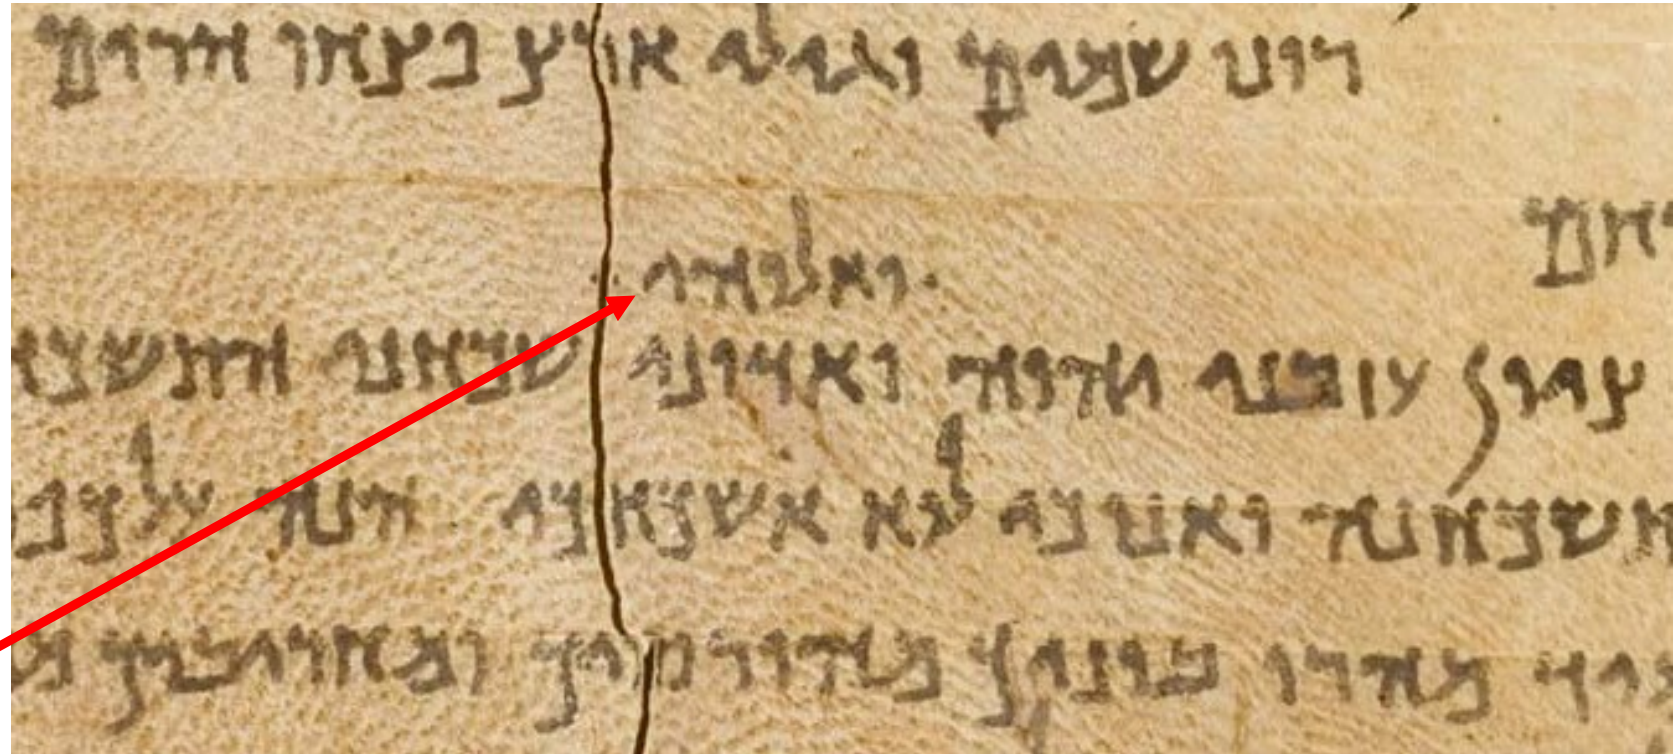 רונו שמים וגילי ארץ פצחו הרים
ואלוהי
ציון עזבני יהוה ואדוני שכחני
ואנוכי לוא אשכחכי הנה על כפי
מהרו בוניך מהורסיך ומחריביך